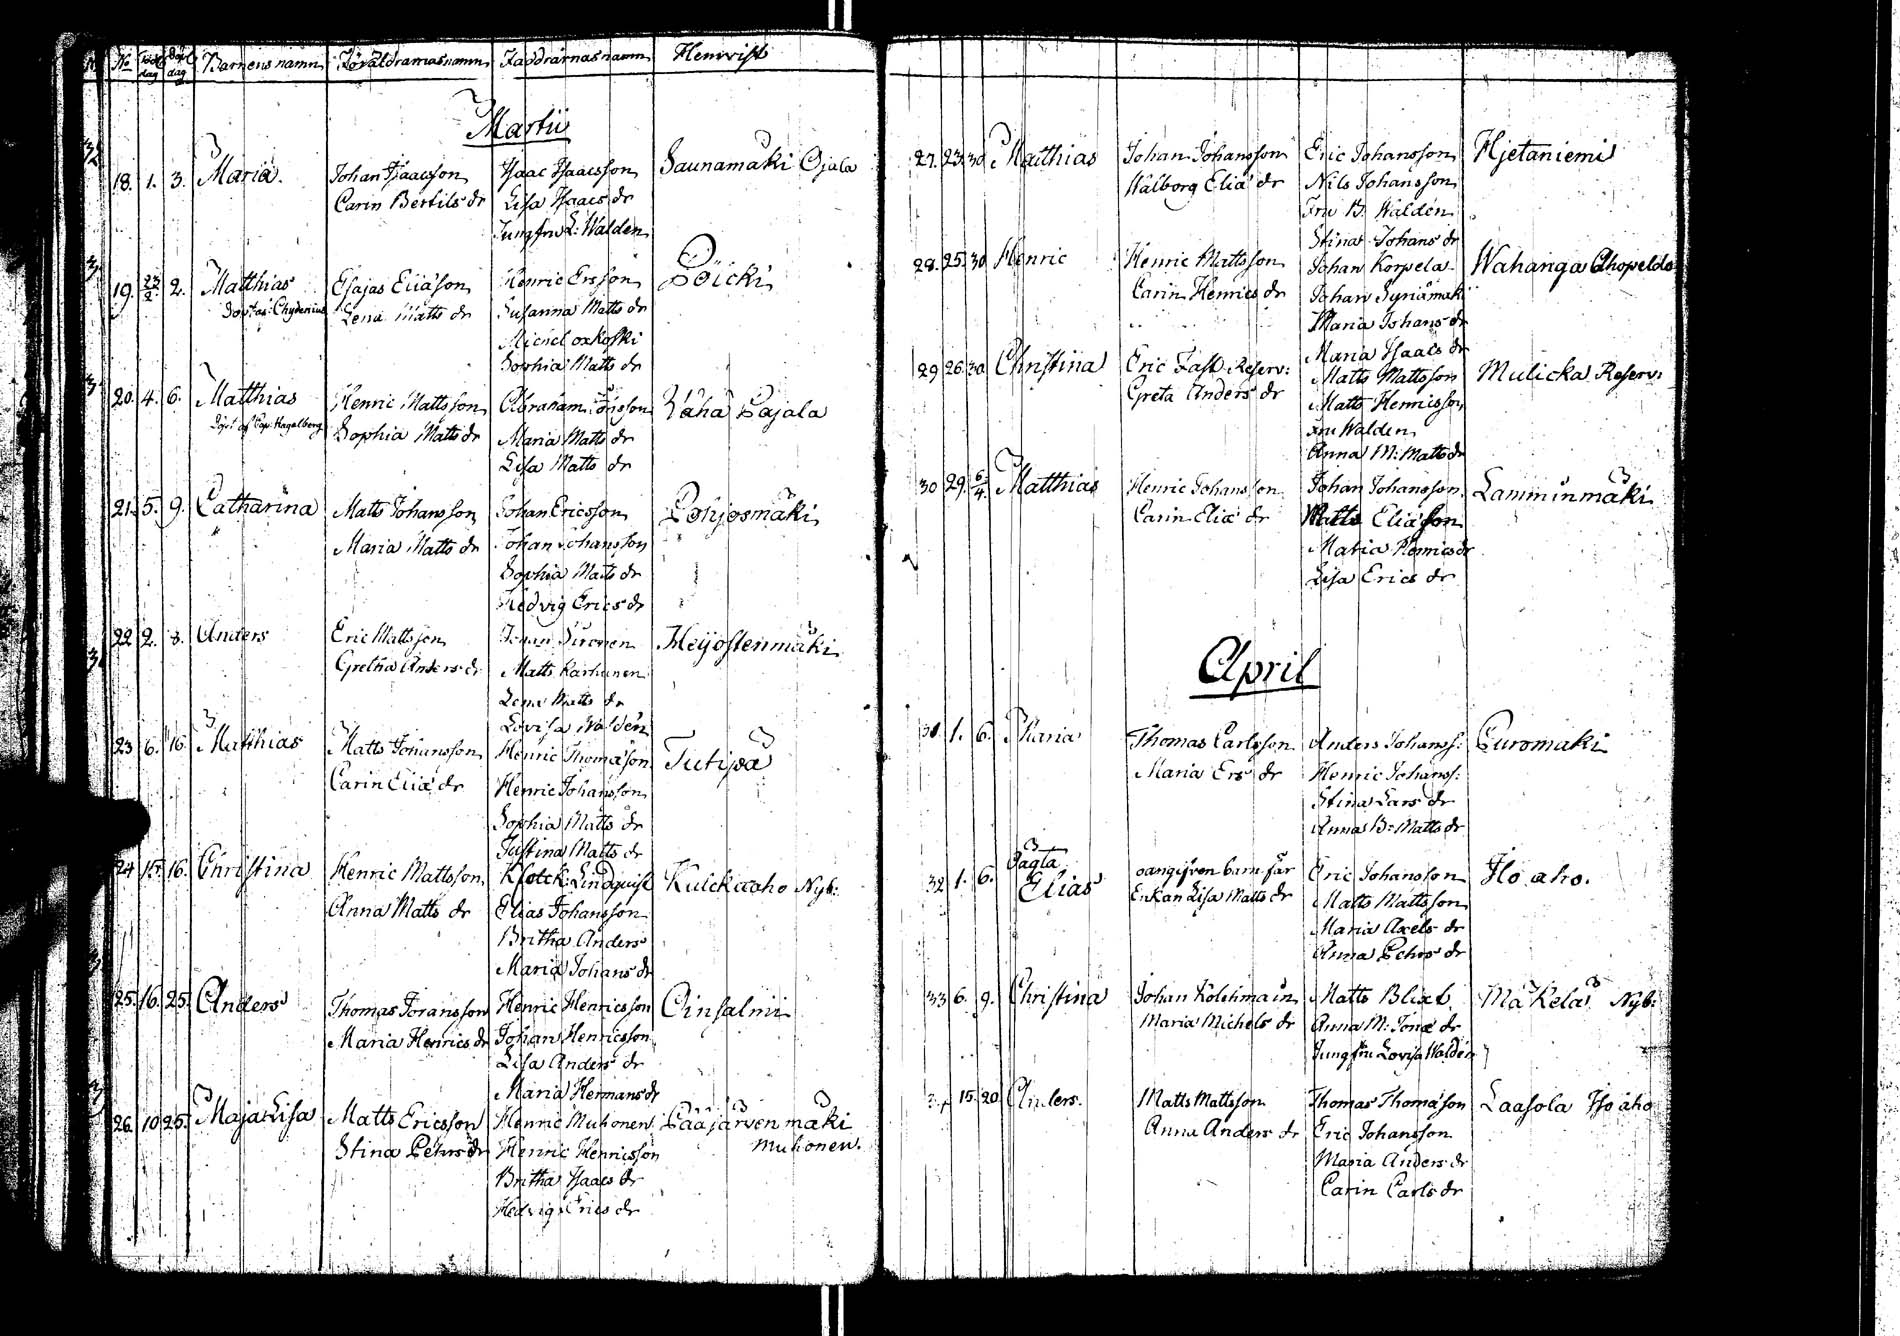 No Född dag Döpt dag Barnens namn Föräldrarnas namn Faddrarnas namn Hemvist
Martii
18. 1. 3. Maria. Johan Isaacsson Isaac Isaacsson Saunamäki Ojala
Carin Bertils dr Lisa Isaacs dr
Jungfru L: Walden
19. 23/2. 2. Matthias Esajas Eliäson Henric Ersson Pöicki
Döpt af: Chydenius Lena Matts dr Susanna Matts dr
Michel oxkoski
Sophia Matts dr
20. 4. 6. Matthias Henric Mattsson Abraham Vähä Pajala
Döpt af Cap: Hagelberg Sophia Matts dr Maria Matts dr
Lisa Matts dr
21. 5. 9. Catharina Matts Johansson Johan Ericsson Pohjosmäki
Maria Matts dr Johan Johansson
Sophia Matts dr
Hedvig Erics dr
22 2. 8. Anders Eric Mattsson Johan Sironen Heijostenmäki
Gretha Anders dr Matts Karhunen
Lena Matts dr
Lovisa Walden
23 6. 16. Matthias Matts Johansson Henric Thomäson Tutipä
Carin Eliæ dr Henric Johansson
Sophia Matts dr
Justina Matts dr
24 15. 16. Christina Henric Mattsson Klock: Lindquist Kulckaaho Nyb:
Anna Matts dr Elias Johansson
Britha Anders
Maria Johans dr
25. 16. 25. Anders Thomas Göransson Henric Henricsson Oinsalmi
Maria Henrics dr Johan Henricsson
Lisa Anders dr
Maria Hermans dr
26. 10 25. Maja Lisa Matts Ericsson Henric Muhonen Pääjärven mäki
Stina Pehrs dr Henric Henricsson Muhonen.
Britha Isaacs dr
Hedvig Erics dr
27. 23. 30 Matthias Johan Johansson Eric Johansson Hjetaniemi
Walborg Eliæ dr Nils Johansson
Fru B. Walden
Stina Johans dr
28. 25. 30 Henric Henric Mattsson Johan Korpela Wahanga Ahopeldo
Carin Henrics dr Johan Syriämäki
Maria Johans dr
Maria Isaacs dr
29 26. 30 Christina Eric Fast Reserv: Matts Mattsson Mulicka Reserv:
Greta Anders dr Matts Henricsson
Fru Walden
Anna M: Matts dr
30 29. 6/4. Matthias Henric Johansson Johan Johansson Lamminmäki
Carin Eliæ dr Matts Eliäson
Maria Henrics dr
Lisa Erics dr
April
31. 1. 6. Maria Thomas Carlsson Anders Johanss: Puromäki
Maria Ers dr Henric Johanss:
Stina Lars dr
Anna B: Matts dr
32 1. 6. Oägta Elias oangifven barnfar Eric Johansson Iso aho.
Enkan Lisa Matts dr Matts Mattsson
Maria Axels dr
Anna Pehrs dr
33 6. 9. Christina Johan Kolehmain Matts Blixt Mäkelä Nyb:
Maria Michels dr Anna M: Jonæ dr
Jungfru Lovisa Walden
34 15. 20 Anders. Matts Mattsson Thomas Thomäson Laasola Iso aho
Anna Anders dr Eric Johansson
Maria Anders dr
Carin Carls dr